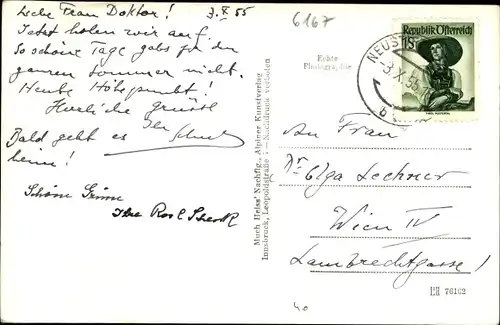 Liebe Frau Doktor! 3.X.55
Jetzt holen wir auf.
So schöne Tage gabs ja den
ganzen Sommer nicht.
Heute Höhepunkt!
Herzliche Grüsse
Ihr
Bald geht es
heim!
Schöne Grüsse
Ihre Rosl
6167
Echte
Photographie
Much Heiss' Nachflg., Alpiner Kunstverlag
Innsbruck, Leopoldstraße - Nachdruck verboten
Republik Österreich
1S
NEUS
3.X.55
An Frau
Dr Olga Lechner
Wien IV
Lambrechtgasse!
76162
40